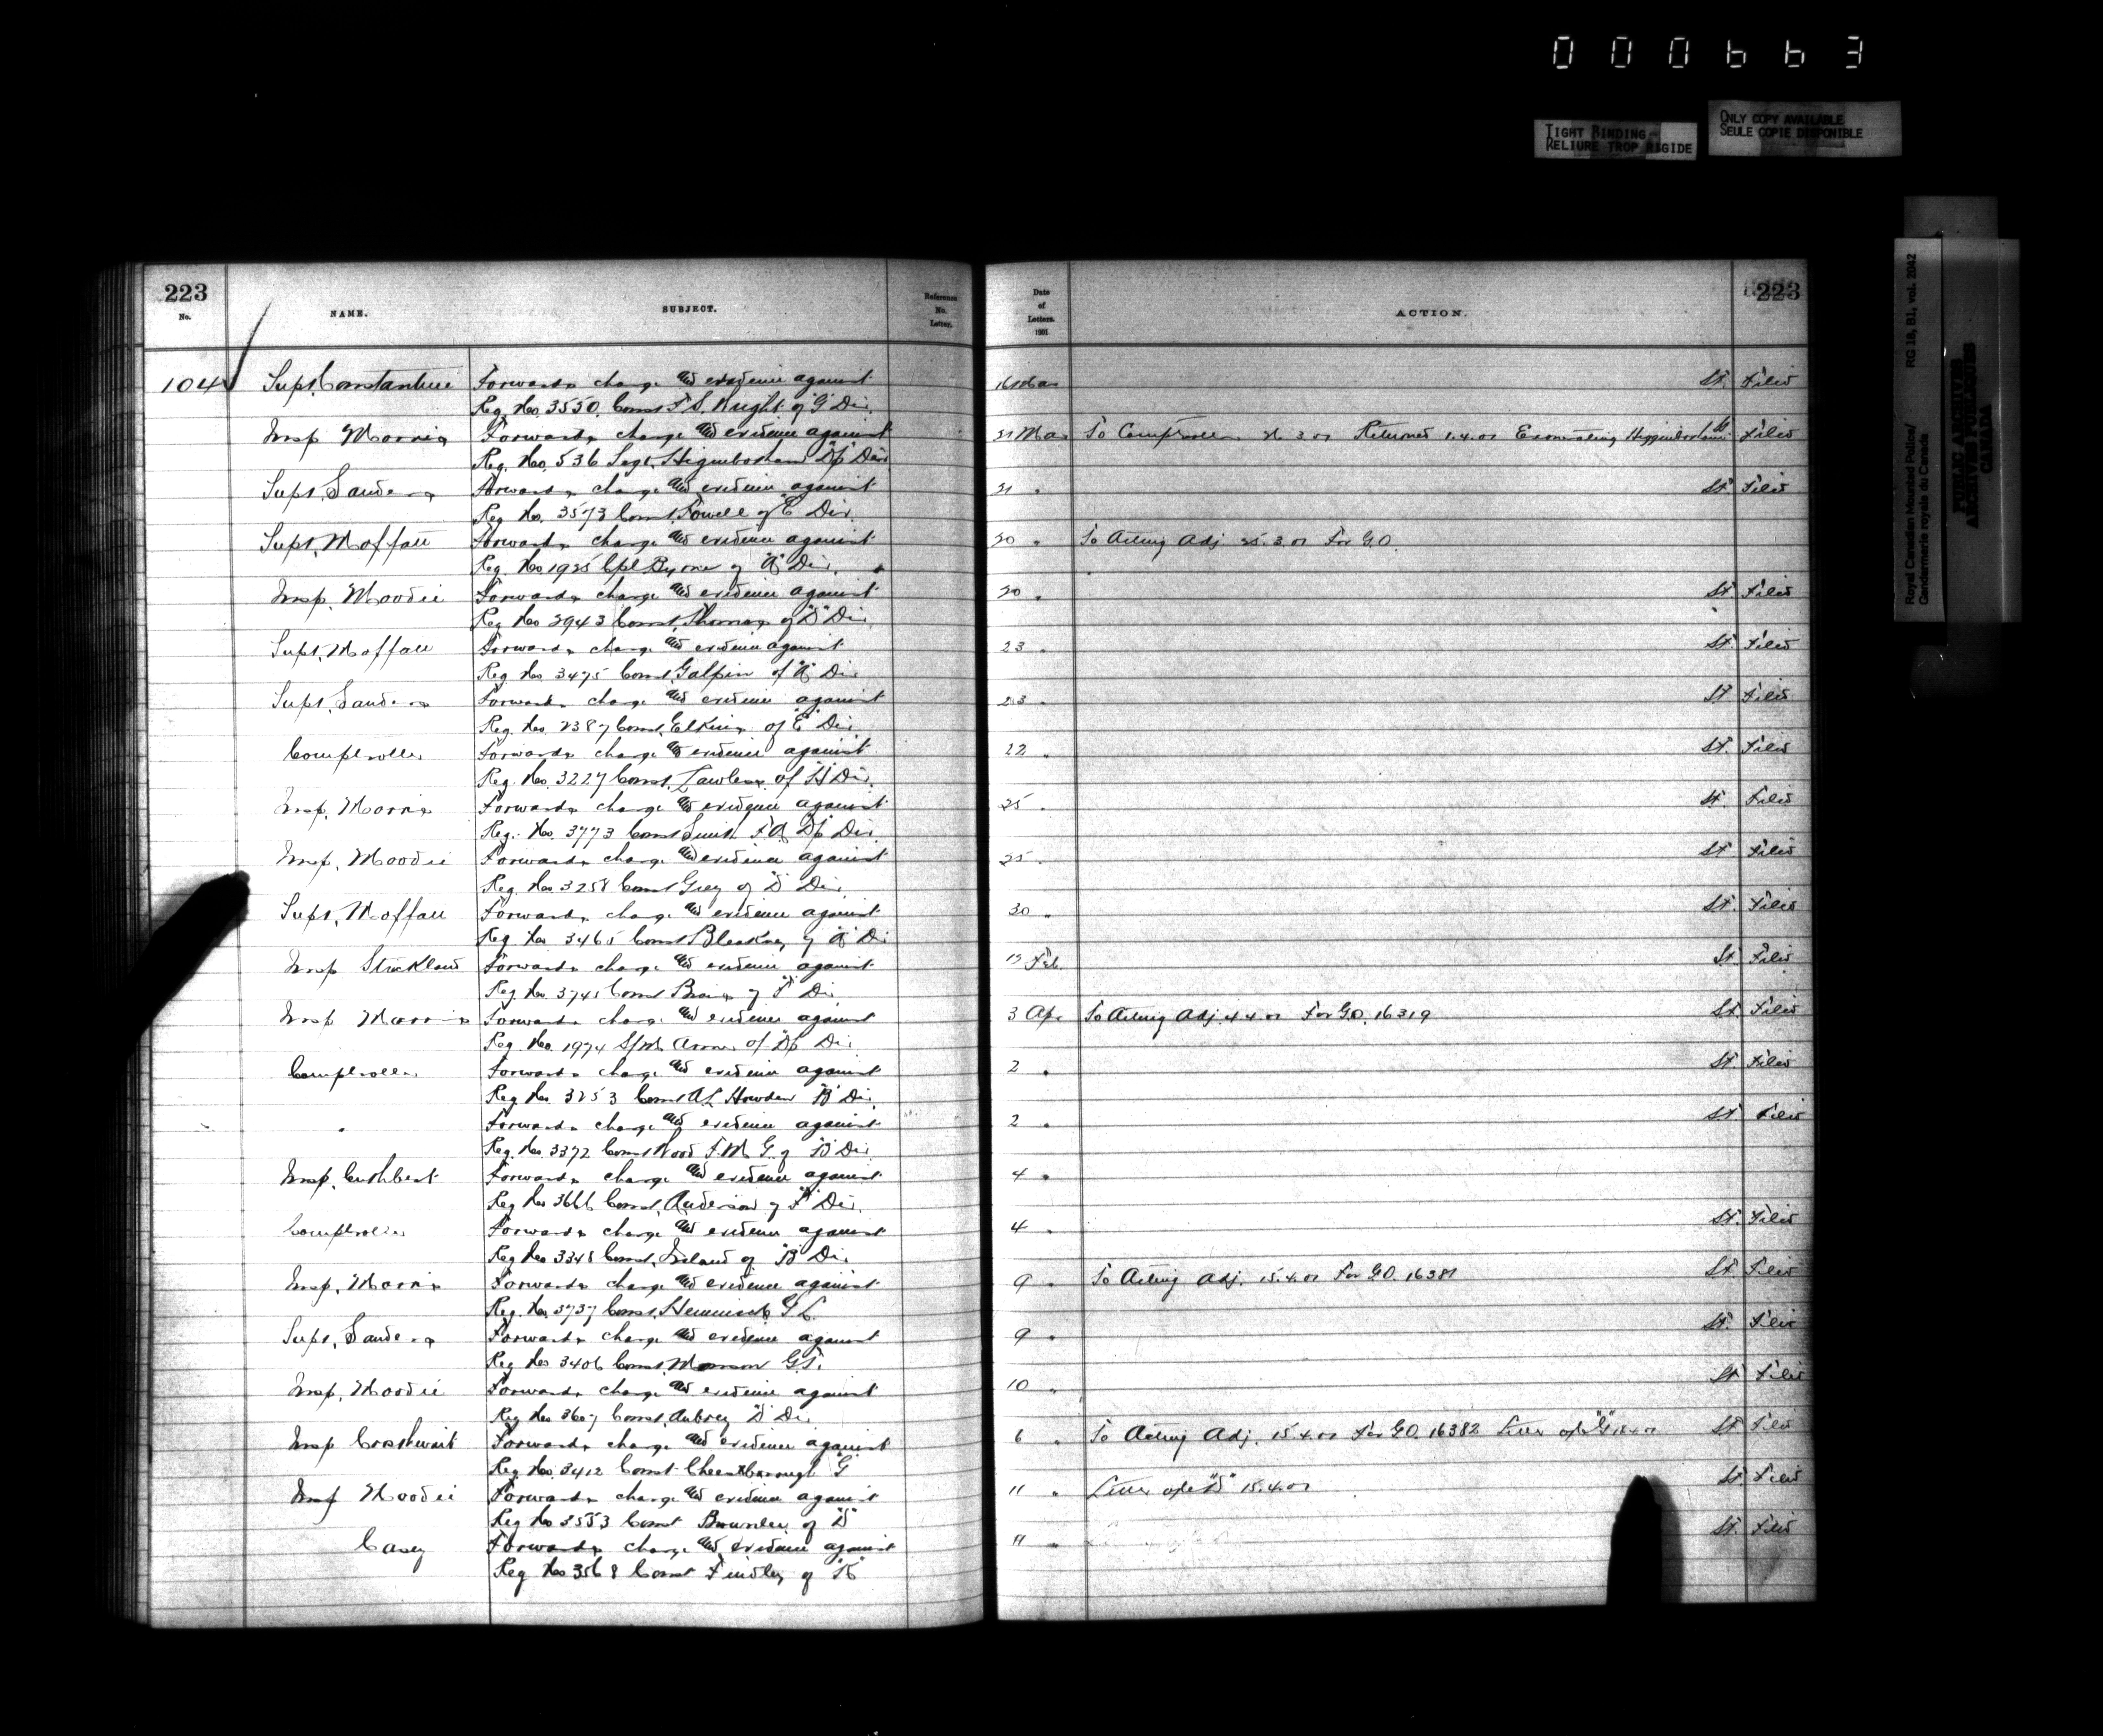 000663
TIGHT BINDING
RELIURE TROP RIGIDE
ONLY COPY AVAILABLE
SEULE COPIE DISPONIBLE
Royal Canadian Mounted Police/
Gendarmerie royale du Canada
RG 18, B1, vol. 2042
PUBLIC ARCHIVES
ARCHIVES PUBLIQUES
CANADA
223
No. NAME. SUBJECT. Reference No. Letter.
Date of Letters. 1901 ACTION. 223
104 Supt. Constantine Forwards charge and evidence against 16 Mar St. Filed
Reg. No. 3550. Const F. S. Wright of "G" Div.
Insp Morris Forwards charge and evidence against 21 Mar To Comptroller 3.01 Returned 1.4.01 Exonerating Higginbotham St Filed
Reg. No. 536 Sergt. Higinbotham Dp Div
Supt. Sanders Forwards charge and evidence against 21 " St Filed
Reg. No. 3573 Const. Fowell of "E" Div.
Supt. Moffatt Forwards charge and evidence against 20 " To Acting Adj 25.3.01 For G.O.
Reg. No 1925 Cpl Byrne of "A" Div.
Insp. Moodie Forwards charge and evidence against 20 " St Filed
Reg No 3943 Const. Thomas of "D" Div.
Supt. Moffatt Forwards charge and evidence against 23 " St. Filed
Reg No 3475 Const. Galpin of "A" Div
Supt. Sanders Forwards charge and evidence against 23 " St Filed
Reg. No. 2387 Const. Elkins of "E" Div.
Comptroller Forwards charge and evidence against 22 " St. Filed
Reg. No. 3227 Const. Lawless of "H" Div.
Insp. Morris Forwards charge and evidence against 25 " St. Filed
Reg. No. 3773 Const Smith F.A. Dp Div
Insp. Moodie Forwards charge and evidence against 25 " St Filed
Reg. No. 3258 Const Grey of "D" Div.
Supt. Moffatt Forwards charge and evidence against 30 " St. Filed
Reg No 3465 Const Bleakney of "A" Di
Insp Strickland Forwards charge and evidence against 13 Feb. St. Filed
Reg. No. 3745 Const of "F" Div.
Insp Morris Forwards charge and evidence against 3 Apr To Acting Adj. 4.4.01 For G.O. 16319 St. Filed
Reg. No. 1974 S/M of Dp Div.
Comptroller Forwards charge and evidence against 2 " St. Filed
Reg No. 3253 Const A L Howden "B" Div.
" Forwards charge and evidence against 2 " St Filed
Reg. No. 3372 Const Wood F. M. G. of "B" Div.
Insp. Cuthbert Forwards charge and evidence against 4 "
Reg No 3666 Const. Anderson of "F" Div.
Comptroller Forwards charge and evidence against 4 " St. Filed
Reg No 3348 Const. Ireland of "B" Div
Insp. Morris Forwards charge and evidence against 9 " To Acting Adj. 15.4.01 For G.O. 16381 St Filed
Reg. No. 3737 Const.
Supt. Sanders Forwards charge and evidence against 9 " St. Filed
Reg No 3406 Const. G.F.
Insp. Moodie Forwards charge and evidence against 10 " St Filed
Reg No 3607 Const. Aubrey "D" Div
Insp Forwards charge and evidence against 6 " To Acting Adj. 15.4.01 For G.O. 16382 Letter o/c "G" St Filed
Reg. No. 3412 Const "G"
Insp Moodie Forwards charge and evidence against 11 " Letter o/c "D" 15.4.01 St. Filed
Reg No 3553 Const of "D"
Casey Forwards charge and evidence against 11 " St. Filed
Reg No 3568 Const Findley of "K"